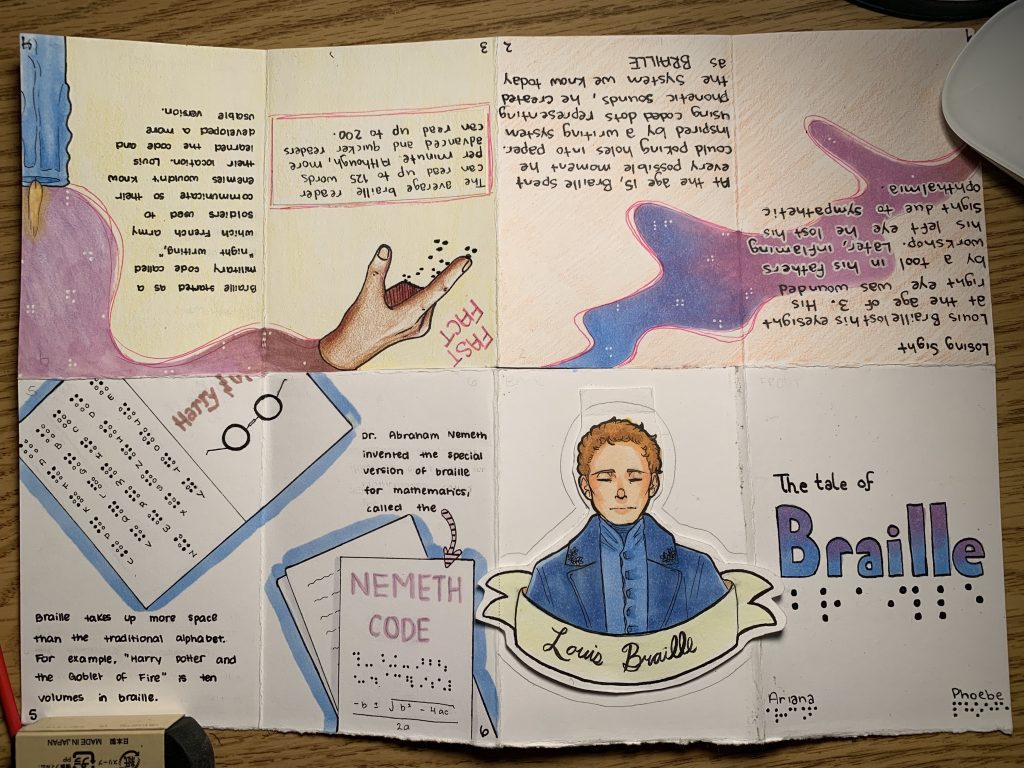 The tale of
Braille
Ariana
Phoebe
FRONT
1
Losing Sight
Louis Braille lost his eyesight
at the age of 3. His
right eye was wounded
by a tool in his Fathers
workshop. Later, inflaming
his left eye he lost his
sight due to sympathetic
ophthalmia.
2
At the age 15, Braille spent
every possible moment he
could poking holes into paper.
Inspired by a writing system
using coded dots representing
phonetic sounds, he created
the system we know today
as BRAILLE
3
FAST
FACT
The average braille reader
can read up to 125 words
per minute. Although, more,
advanced and quicker readers
can read up to 200.
4
Braille started as a
military code called
"night writing",
which French army
soldiers used to
communicate so their
enemies wouldn't know
their location. Louis
learned the code and
developed a more
usable version.
5
Harry
Braille takes up more space
than the traditional alphabet.
For example, "Harry Potter and
the Goblet of Fire" is ten
volumes in braille.
5
6
Dr. Abraham Nemeth
invented the special
version of braille
for mathematics,
called the
NEMETH
CODE
-b ± √b² - 4ac
2a
6
Louis Braille
MADE IN JAPAN 日本製